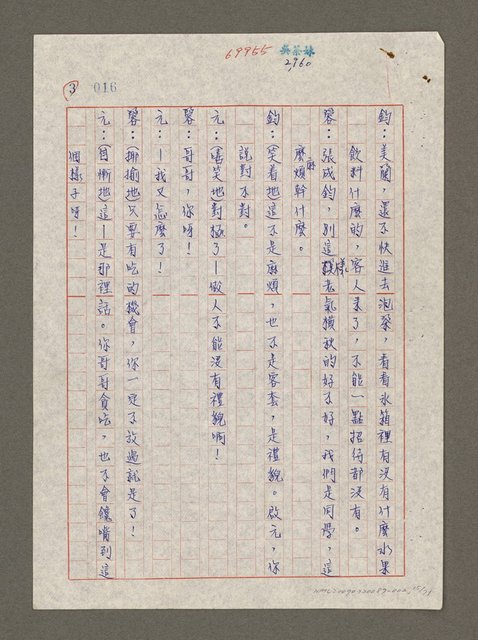 69955
吳榮林
2,960
3
016
鈞：美蘭，還不快進去泡茶，看看冰箱裡有沒有什麼水果
飲料什麼的，客人來了，不能一點招待都沒有。
蓉：張成鈞，別這樣老氣橫秋的好不好，我們是同學，這
麼麻煩幹什麼。
鈞：(笑着地)這不是麻煩，也不是客套，是禮貌。啟元，你
說對不對。
元：(嘻笑地)對極了—做人不能沒有禮貌啊！
蓉：哥哥，你呀！
元：—我又怎麼了！
蓉：(揶揄地)只要有吃的機會，你一定不放過就是了！
元：(自慚地)這—是那裡話。你哥哥貪吃，也不會饞嘴到這
個樣子呀！